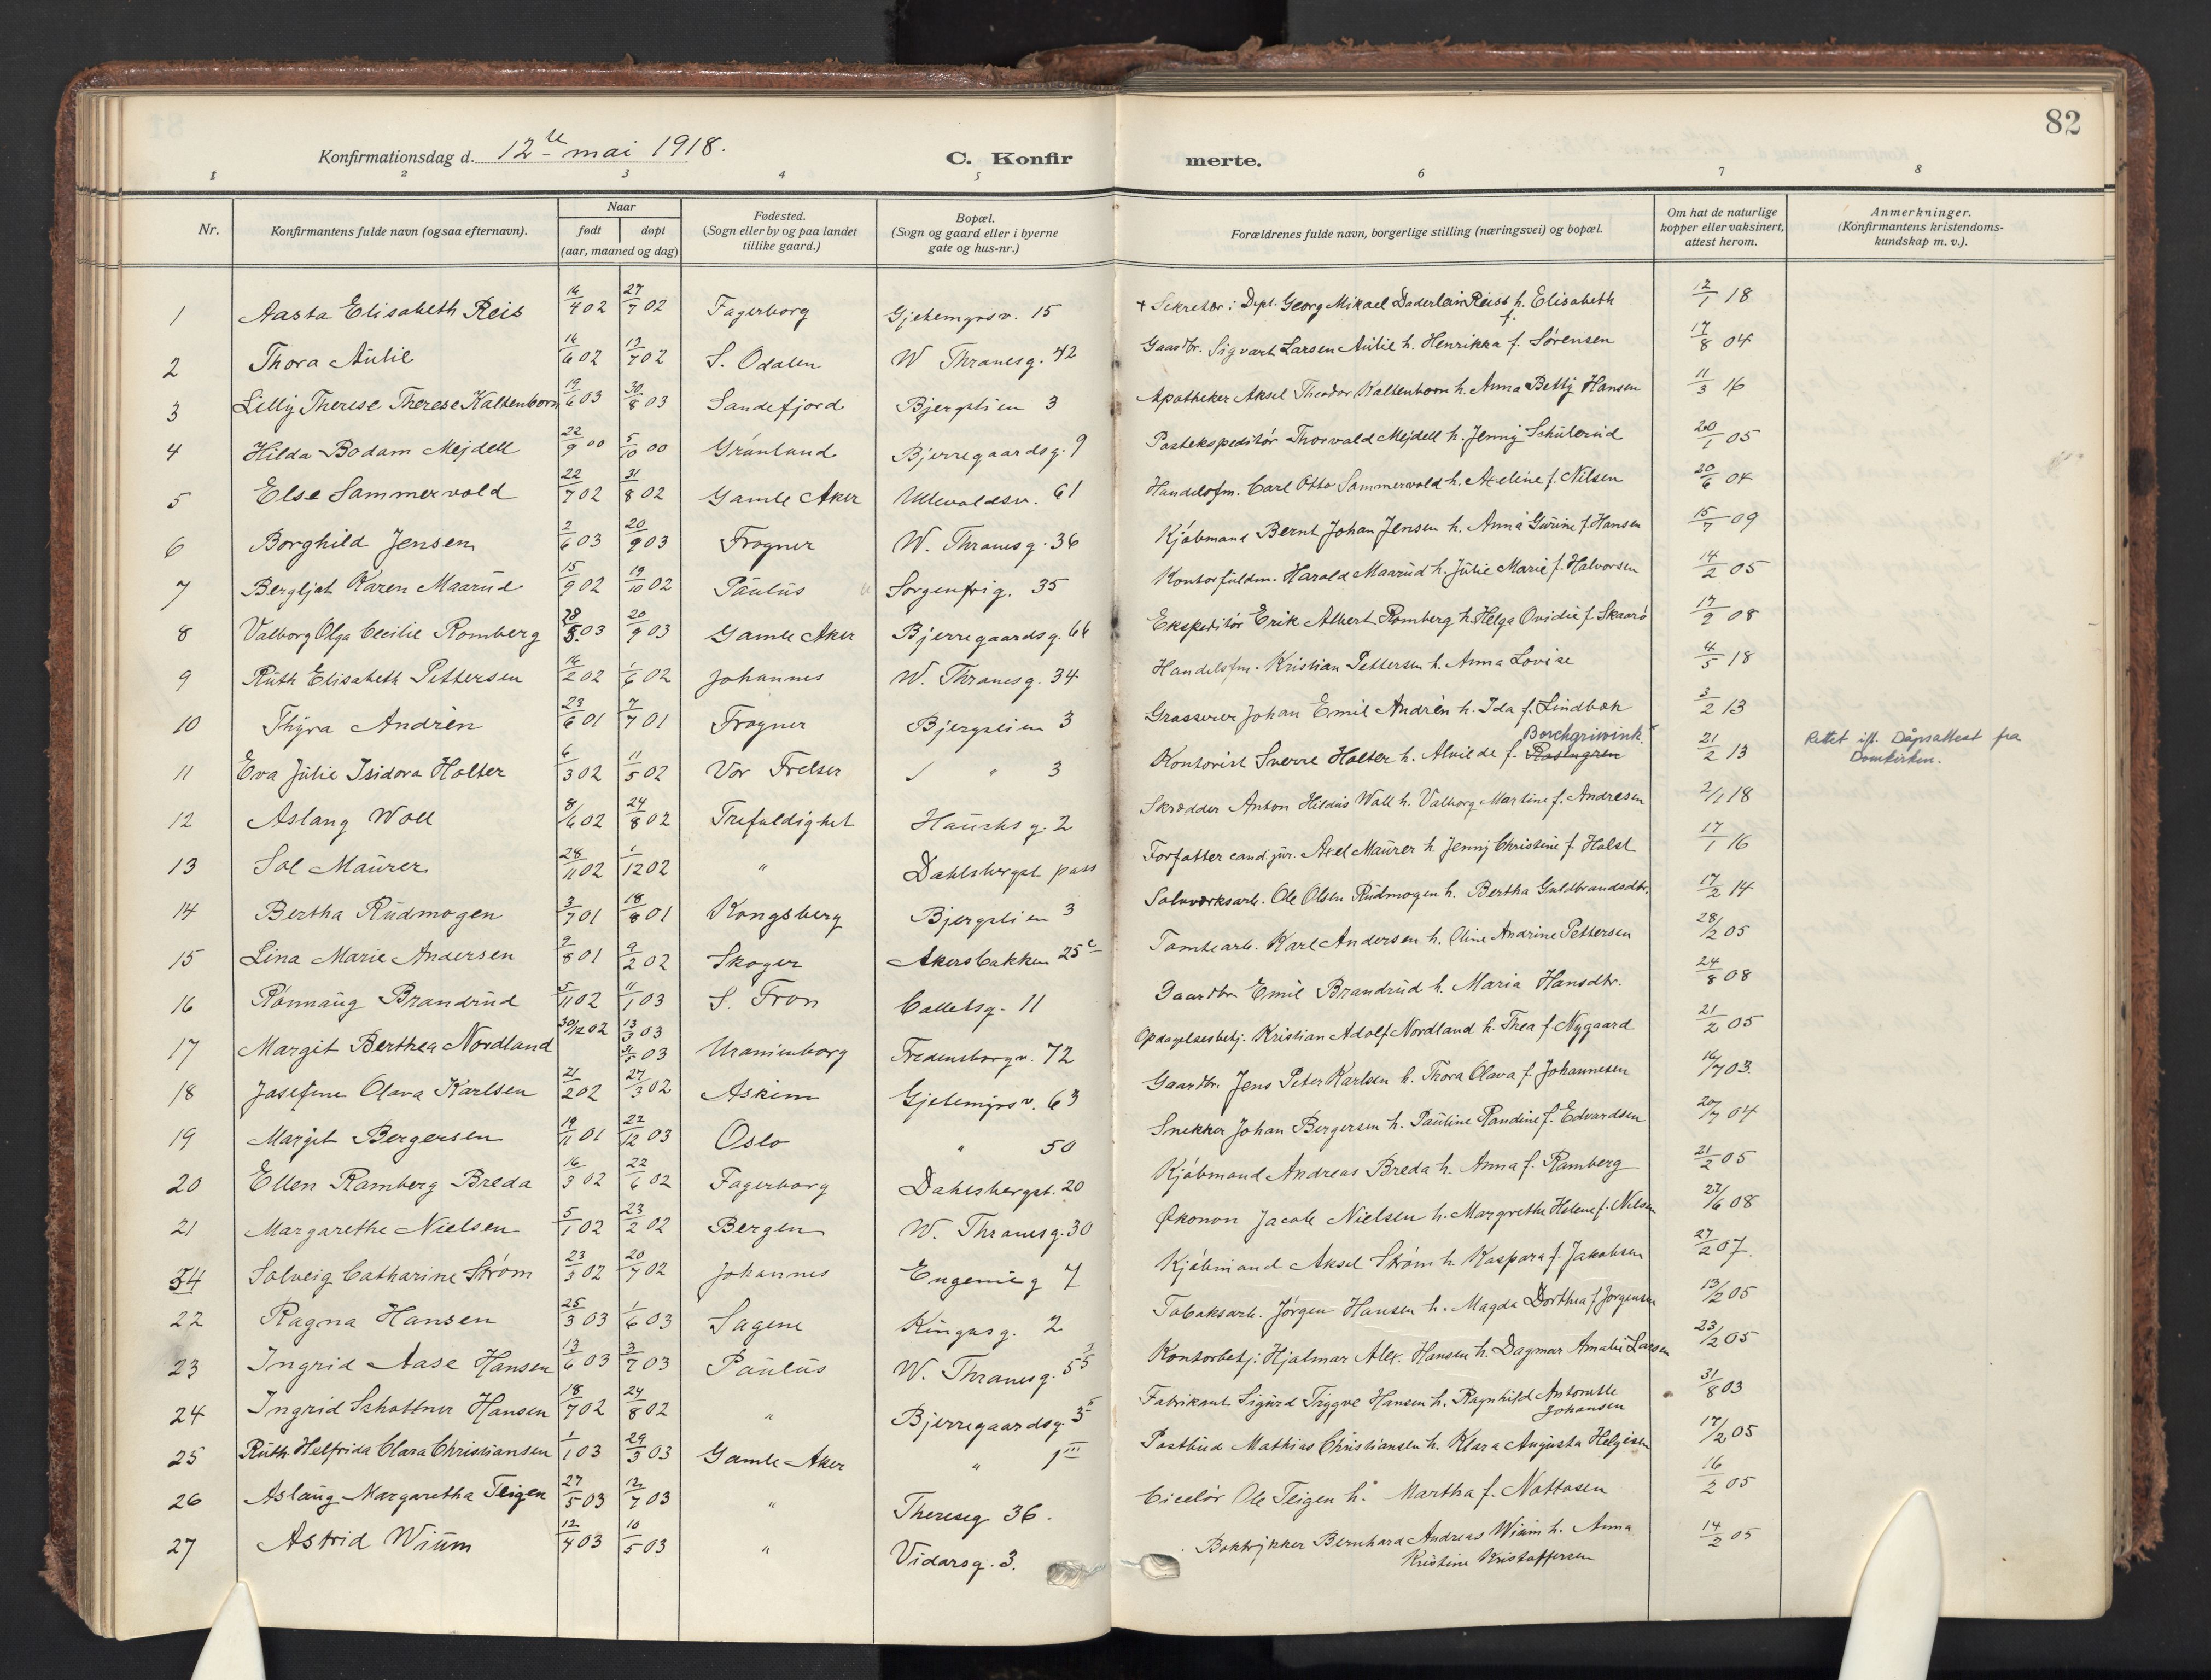 82
Konfirmationsdag d. 12te mai 1918. C. Konfirmerte.
1 2 3 4 5 6 7 8
Nr. Konfirmantens fulde navn (ogsaa efternavn). Naar født døpt (aar, maaned og dag) Fødested. (Sogn eller by og paa landet tillike gaard.) Bopæl. (Sogn og gaard eller i byerne gate og hus-nr.) Forældrenes fulde navn, borgerlige stilling (næringsvei) og bopæl. Om hat de naturlige kopper eller vaksinert, attest herom. Anmerkninger. (Konfirmantens kristendomskundskap m. v.).
1 Aasta Elisabeth Reis 14/4 02 27/7 02 Fagerborg Gjetemyrsv. 15 + Sekretær i Dept. Georg Mikael Døderlein Reiss h. Elisabeth f. 12/1 18
2 Thora Aulie 14/6 02 13/7 02 S. Odalen W Thranesg. 42 Gaardbr. Sigvart Larsen Aulie h. Henrikka f. Sørensen 17/8 04
3 Lilly Therese Therese Kaltenborn 19/6 03 30/8 03 Sandefjord Bjergstien 3 Apotheker Aksel Theodor Kaltenborn h. Anna Betty Hansen 11/3 16
4 Hilda Bodom Mejdell 22/9 00 5/10 00 Grønland Bjerregaardsg. 9 Postekspeditør Thorvald Mejdell h. Jenny Schulerud 20/1 05
5 Else Sammervold 22/7 02 31/8 02 Gamle Aker Ullevoldsv. 61 Handelsfm. Carl Otto Sammervold h. Axeline f. Nilsen 20/6 04
6 Borghild Jensen 2/6 03 20/9 03 Frogner W. Thranesg. 36 Kjøbmand Bernt Johan Jensen h. Anna Gurine f. Hansen 15/7 09
7 Bergljot Karen Maarud 15/9 02 19/10 02 Paulus Sorgenfrig. 35 Kontorfuldm. Harald Maarud h. Julie Marie f. Halvorsen 14/2 05
8 Valborg Olga Cecilie Romberg 28/5 03 20/9 03 Gamle Aker Bjerregaardsg. 66 Ekspeditør Erik Albert Romberg h. Helga Ovidie f. Skaarø 17/2 08
9 Ruth Elisabeth Pettersen 14/2 02 1/6 02 Johannes W. Thranesg. 34 Handelsfm. Kristian Pettersen h. Anna Lovise 4/5 18
10 Thyra Andrén 23/6 01 7/7 01 Frogner Bjergstien 3 Grosserer Johan Emil Andrén h. Ida f. Lindbæk 3/2 13
11 Eva Julie Isidora Holter 6/3 02 11/5 02 Vor Frelser " 3 Kontorist Sverre Holter h. Alvilde f. Rosengren Borchgrivink. 21/2 13 Rettet ifl. Dåpsattest fra Domkirken.
12 Aslaug Woll 8/6 02 24/8 02 Trefoldighet Hauchs g. 2 Skrædder Anton Hildus Woll h. Valborg Martine f. Andresen 2/1 18
13 Sol Maurer 28/11 02 1/12 02 " Dahlsbergst pass Forfatter cand. jur. Axel Maurer h. Jenny Christine f. Holst 17/1 16
14 Bertha Rudmogen 3/7 01 18/8 01 Kongsberg Bjergstien 3 Sølvverksarb. Ole Olsen Rudmogen h. Bertha Guldbrandsdtr. 17/2 14
15 Lina Marie Andersen 2/8 01 9/2 02 Skoger Akersbakken 25c Tomtearb. Karl Andersen h. Oline Andrine Pettersen 28/2 05
16 Rønnaug Brandrud 5/11 02 11/1 03 S. Fron Colletsg. 11 Gaardbr. Emil Brandrud h. Maria Hansdtr. 24/8 08
17 Margit Berthea Nordland 30/12 02 13/3 03 31/5 03 Uranienborg Fredensborgv. 72 Opdagelsesbetj. Kristian Adolf Nordland h. Thea f. Nygaard 21/2 05
18 Josefine Olava Karlsen 21/2 02 27/3 02 Askim Gjetemyrsv. 63 Gaardbr. Jens Peter Karlsen h. Thora Olava f. Johannesen 16/7 03.
19 Margit Bergersen 19/11 01 22/12 03 Oslo " 50 Snekker Johan Bergersen h. Pauline Randine f. Edvardsen 20/7 04
20 Ellen Ramberg Breda 16/3 02 22/6 02 Fagerborg Dahlsbergst. 20 Kjøbmand Andreas Breda h. Anna f. Ramberg 21/2 05
21 Margarethe Nielsen 5/1 02 23/2 02 Bergen W. Thranesg. 30 Økonom Jacob Nielsen h. Margrethe Helene f. Nilsen 27/6 08
34 Solveig Catharine Strøm 23/3 02 20/7 02 Johannes Eugenie g 7 Kjøbmand Aksel Strøm h. Kaspara f. Jakobsen 27/2 07.
22 Ragna Hansen 25/3 03 1/6 03 Sagene Kingosg. 2 Tobaksarb. Jørgen Hansen h. Magda Dorthea f. Jørgensen 13/2 05
23 Ingrid Aase Hansen 13/6 03 3/7 03 Paulus W. Thranesg. 55 Kontorbetj. Hjalmar Alex. Hansen h. Dagmar Amalie Larsen 23/2 05
24 Ingrid Schøttner Hansen 18/7 02 24/8 02 " Bjerregaardsg. 3 Fabrikant Sigurd Tryggve Hansen h. Ragnhild Antonette Johansen 31/8 03
25 Ruth Helfrida Clara Christiansen 1/1 03 29/3 03 Gamle Aker " 1III Postbud Mathias Christiansen h. Klara Augusta Helgesen 17/2 05
26 Aslaug Margaretha Teigen 27/5 03 12/7 03 " Thereseg 36. Ciselør Ole Teigen h. Martha f. Nottosen 16/2 05
27 Astrid Wium 12/4 03 10/5 03 " Vidarsg. 3. Boktrykker Bernhard Andreas Wium h. Anna Kristine Kristoffersen 14/2 05